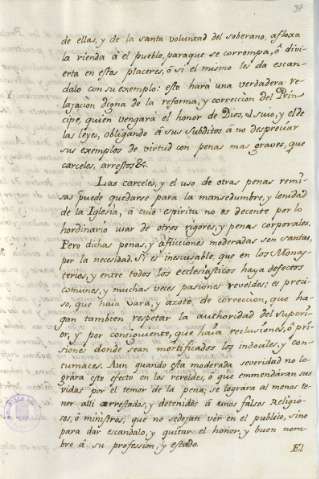 de ellas, y de la santa voluntad del soberano, afloxa
la rienda à el pueblo, paraque se corrompa, ò divi-
erta en estos placeres, ò si el mismo les da escan-
dalo con su exemplo: esto hará una verdadera re-
lajacion digna de la reforma, y correccion del Prin-
cipe, quien vengará el honor de Dios, el suio, y el de
las leyes, obligando à sus subditos à no despreciar
sus exemplos de virtud con penas mas graves, que
carceles, arrestos &.
Las carceles, y el uso de otras penas remi-
sas puede quedarse para la mansedumbre, y lenidad
de la Iglesia, à cuio espiritu no es decente por lo
hordinario usar de otros rigores, y penas corporales.
Pero dichas penas, y aflicciones moderadas son santas,
por la necesidad. Si es inescusable, que en los Monas-
terios, y entre todos los eclesiasticos haya defectos
comunes, y muchas veces pasiones reveldes; es preci-
so, que haia vara, y azote de correccion, que ha-
gan tambien respetar la authoridad del superi-
or, y por consiguiente, que haia reclusiones, ò pri-
siones donde sean mortificados los indociles, y con-
tumaces. Aun quando esta moderada severidad no lo-
grára este efecto en los reveldes, ò que emmendáran sus
vidas por el temor de la pena; se lográra al menos te-
ner alli arrestados, y detenidos à unos falsos Religio-
sos, ò ministros, que no se dejan vér en el publico, sino
para dar escandalo, y quitar el honor, y buen nom-
bre à su profession, y estado.
El